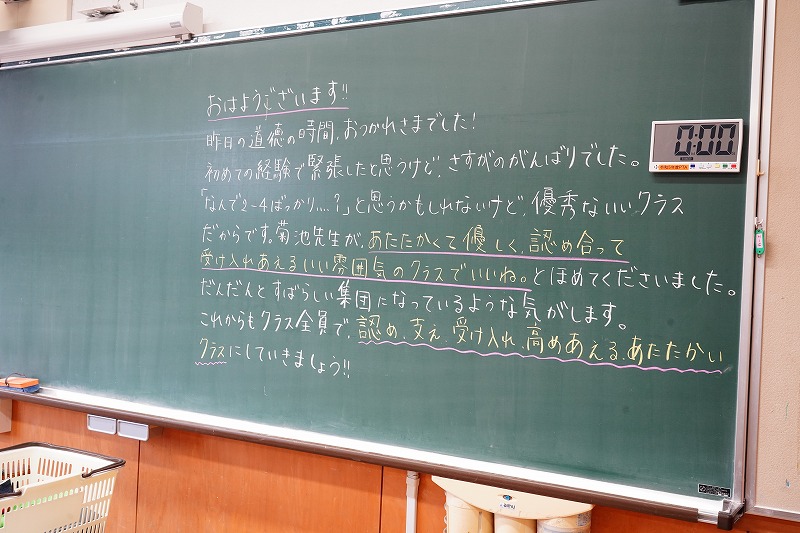 おはようございます!!
昨日の道徳の時間、おつかれさまでした!
初めての経験で緊張したと思うけど、さすがのがんばりでした。
「なんで2-4ばっかり....?」と思うかもしれないけど、優秀ないいクラス
だからです。菊池先生が、あたたかくて優しく、認め合って
受け入れあえるいい雰囲気のクラスでいいね。とほめてくださいました。
だんだんとすばらしい集団になっているような気がします。
これからもクラス全員で、認め、支え、受け入れ、高めあえる、あたたかい
クラスにしていきましょう!!
0:00